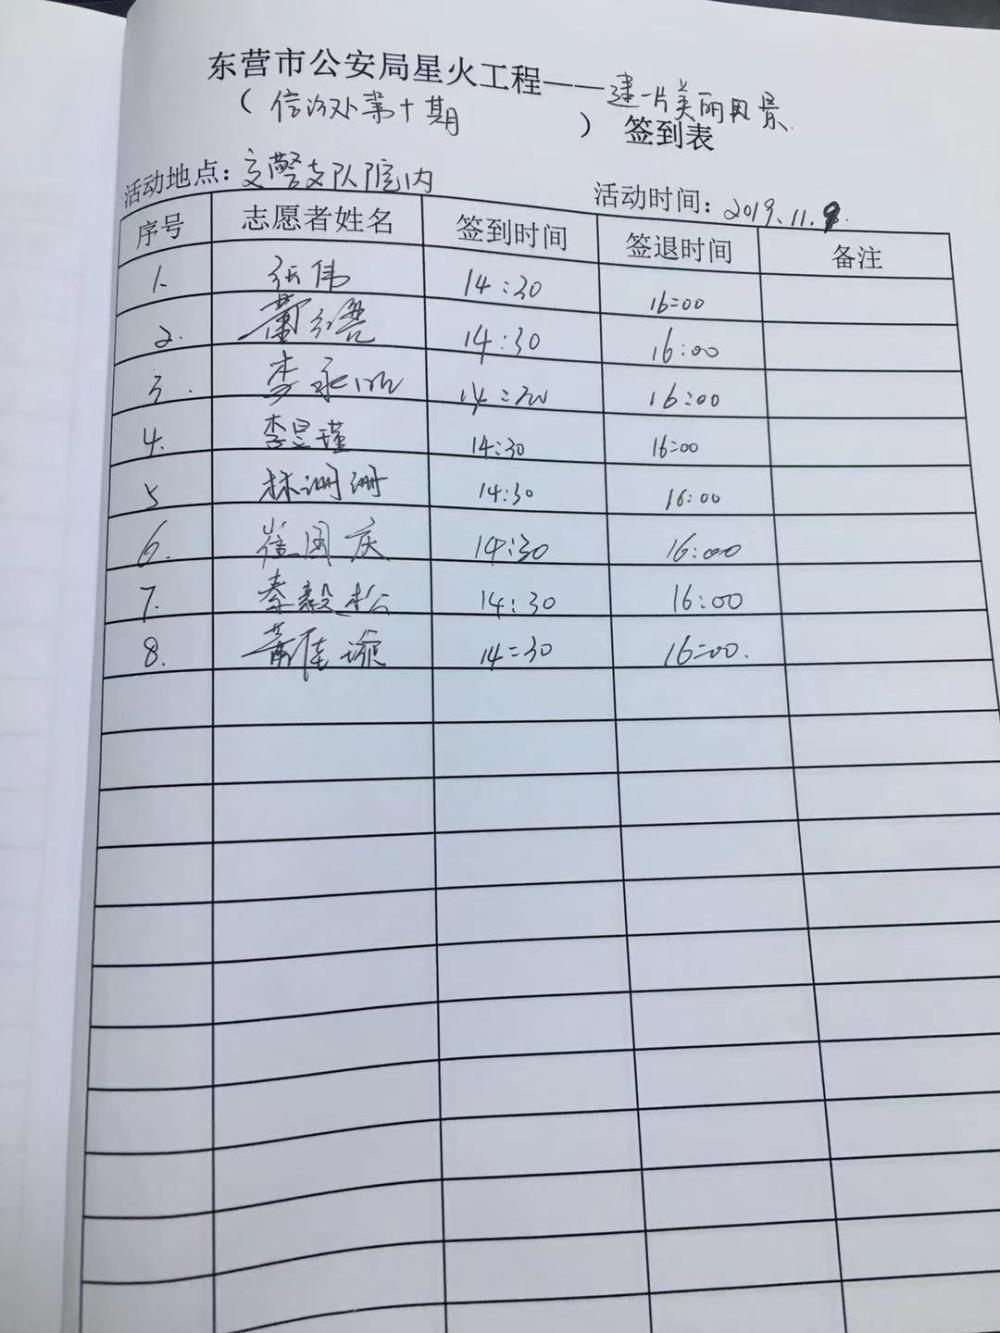 东营市公安局星火工程——建一片美丽风景
(信访处第十期) 签到表
活动地点：交警支队院内 活动时间：2019.11.8.
序号 志愿者姓名 签到时间 签退时间 备注
1. 张伟 14:30 16:00
2. 董 14:30 16:00
3. 李永 14:30 16:00
4. 李昱瑾 14:30 16:00
5 林姗姗 14:30 16:00
6. 崔国庆 14:30 16:00
7. 秦毅松 14:30 16:00
8. 黄佳璇 14:30 16:00.